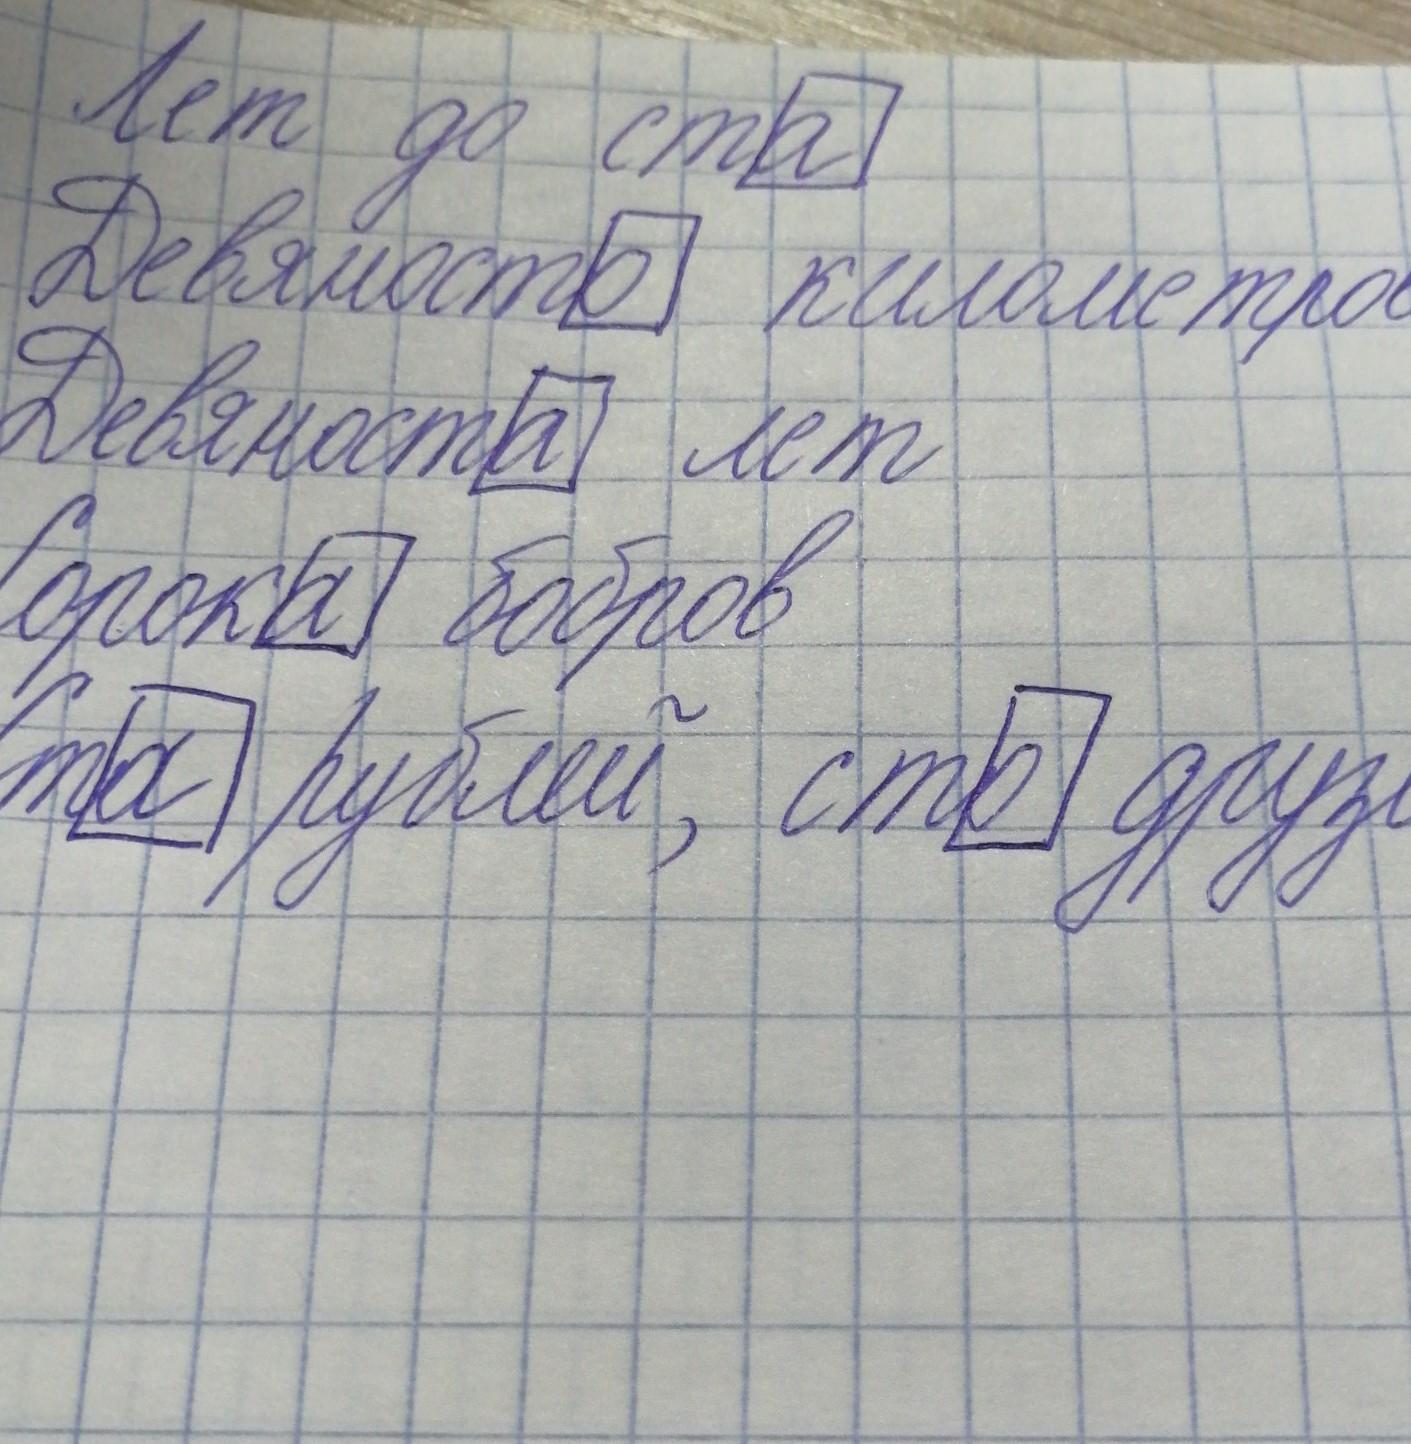 Лет до ста
Девяносто километров
Девяноста лет
Сорока бобров
Ста рублей, сто